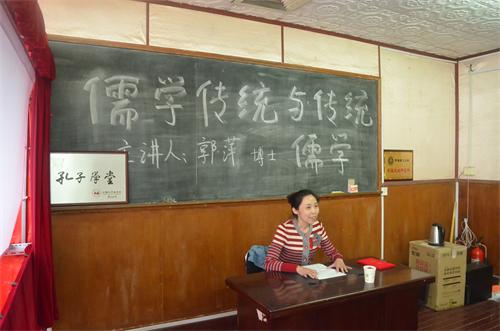 儒学传统与传统
儒学
主讲人：郭萍 博士
孔子学堂